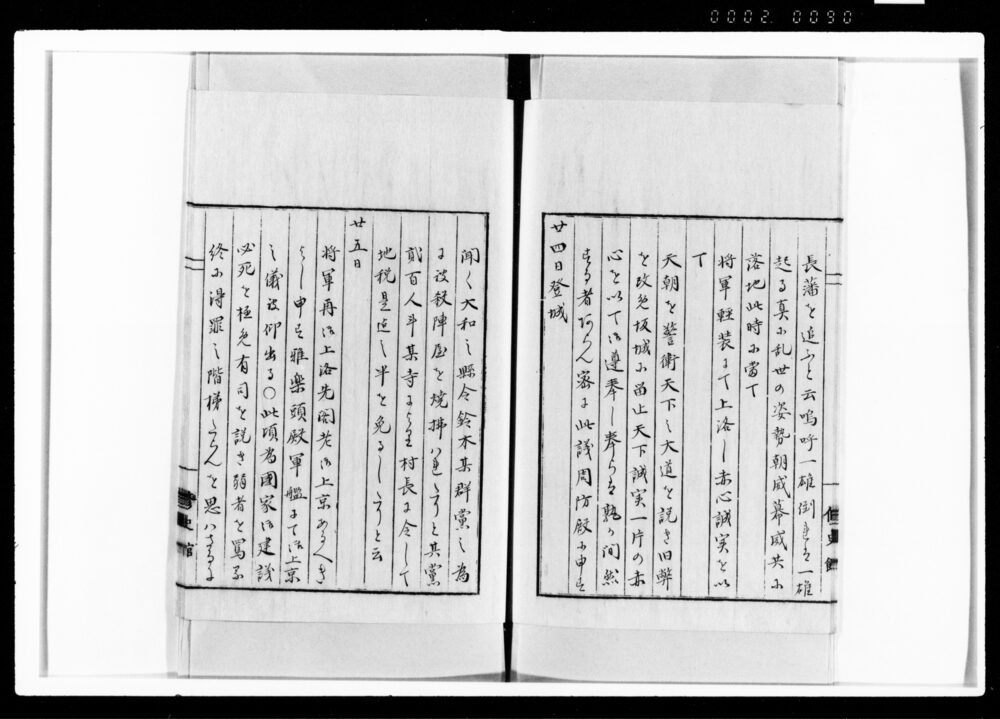 0002 0090
長藩を追ふと云嗚呼一雄倒きは一雄
起る真に乱世の姿勢朝威幕威共に
落地此時に當て
将軍軽装にて上洛し赤心誠実を以
て
天朝を警衛天下之大道を説き旧弊
を改免坂城に留止天下誠実一片の赤
心を以て御遵奉し奉らは孰か間然
する者阿らん密に此議周防殿に申す
廿四日登城
聞く大和之縣令鈴木某群黨之為
に被殺陣屋を焼拂はれしと其黨
貳百人斗某寺により村長に令して
地税是迄之半を免るしと云
廿五日
将軍再御上洛先閣老御上京あるへき
よし申す雅楽頭殿軍艦にて御上京
之儀被仰出る〇此頃為國家御建議
必死を極免有司を説き弱者を罵る
終に得罪之階梯ならんを思はさるに
史館